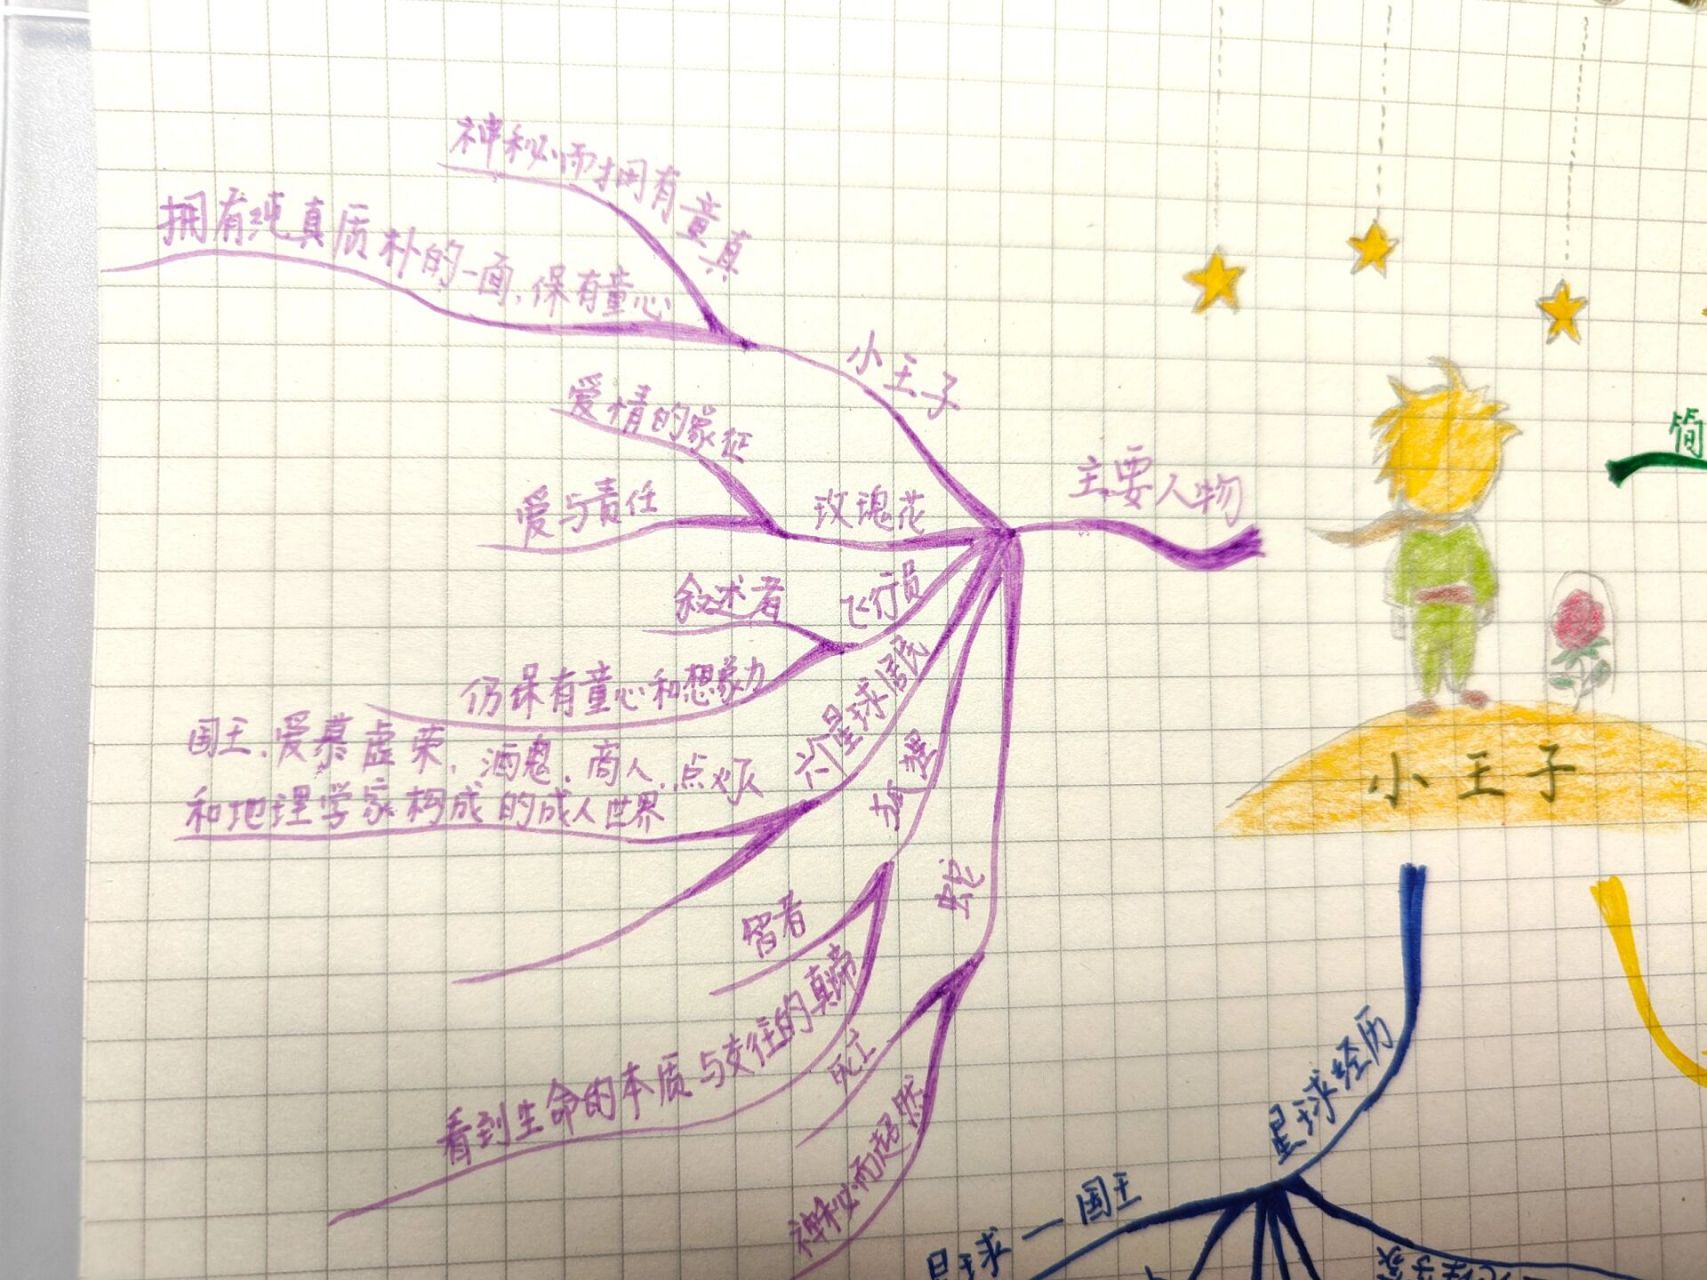 神秘而拥有童真
拥有纯真质朴的一面,保有童心
小王子
爱情的象征
爱与责任
玫瑰花
主要人物
叙述者
飞行员
仍保有童心和想象力
国王、爱慕虚荣、酒鬼、商人、点灯
和地理学家构成的成人世界
六个星球居民
狐狸
智者
看到生命的本质与交往的真谛
蛇
死亡
神秘而超然
小王子
简
星球经历
国王
星球